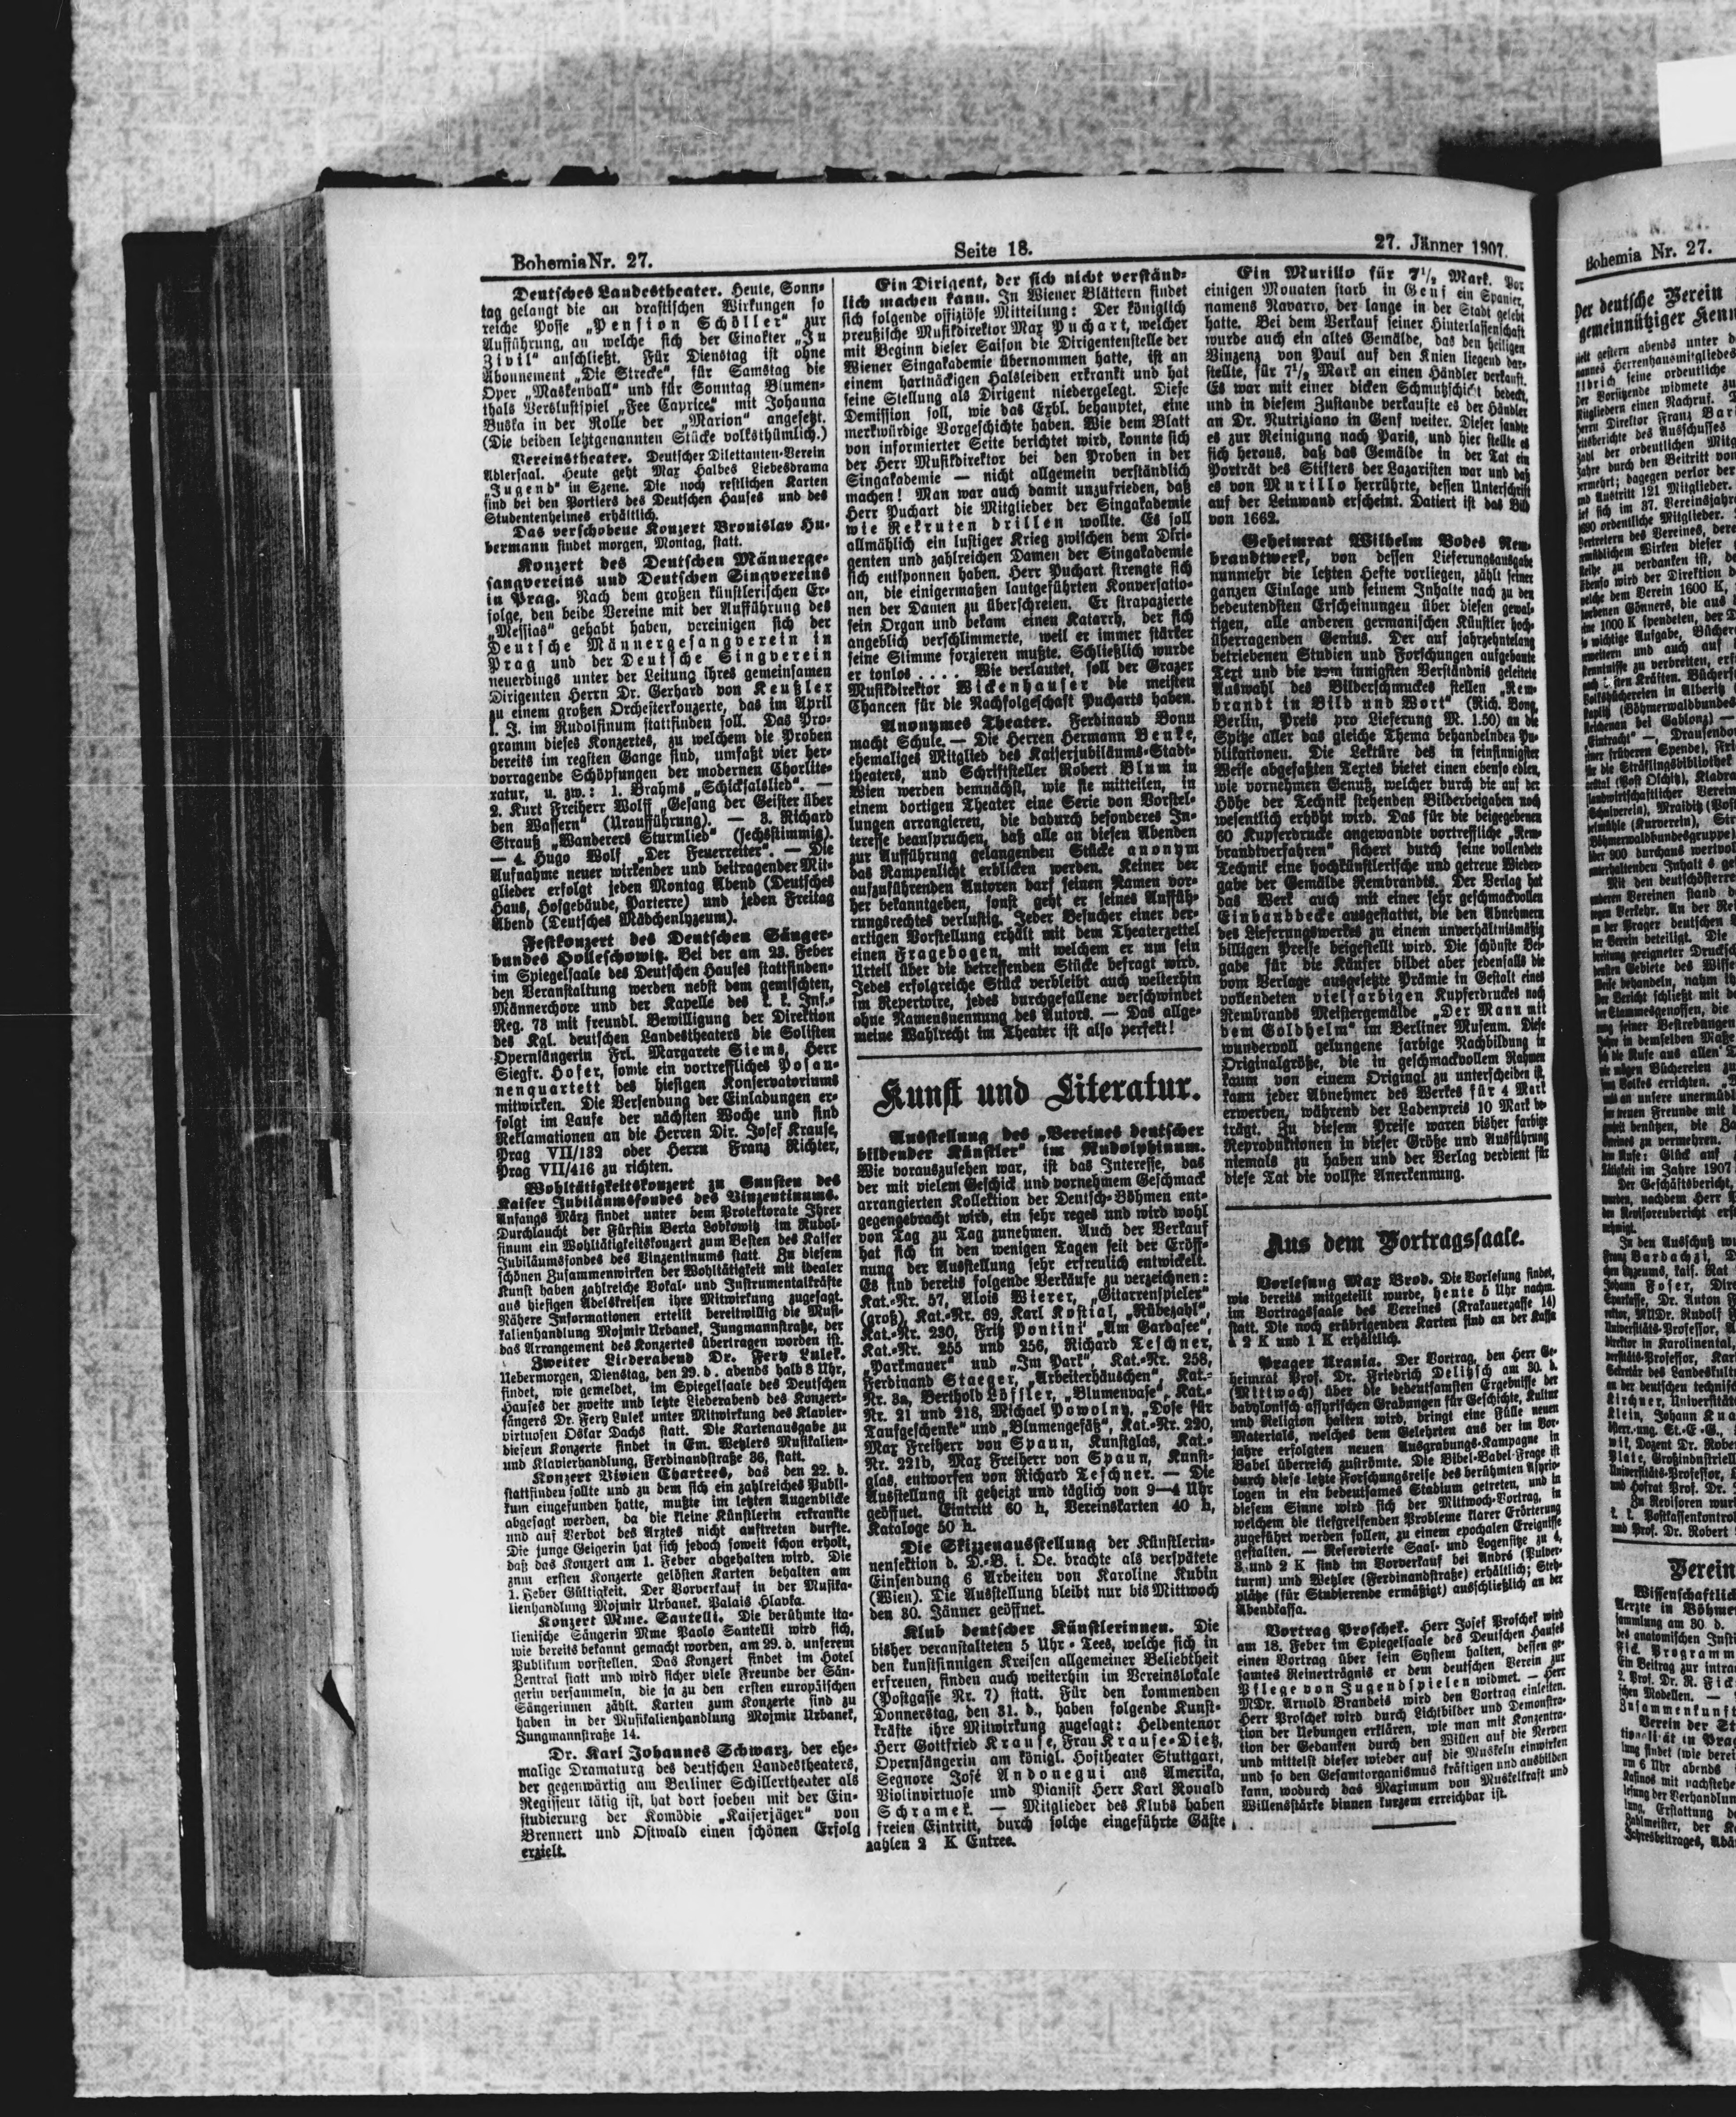 Bohemia Nr. 27.
Seite 18.
27. Jänner 1907.
Deutsches Landestheater. Heute, Sonn-
tag gelangt die an drastischen Wirkungen so
reiche Posse „Pension Schöller" zur
Aufführung, an welche sich der Einakter „In
Zivil" anschließt. Für Dienstag ist ohne
Abonnement „Die Strecke", für Samstag die
Oper „Maskenball" und für Sonntag Blumen-
thals Verslustspiel „Fee Caprice" mit Johanna
Buska in der Rolle der „Marion" angesetzt.
(Die beiden letztgenannten Stücke volksthümlich.)
Vereinstheater. Deutscher Dilettanten-Verein
Adlersaal. Heute geht Max Halbes Liebesdrama
„Jugend" in Szene. Die noch restlichen Karten
sind bei den Portiers des Deutschen Hauses und des
Studentenheimes erhältlich.
Das verschobene Konzert Bronislav Hu-
bermann findet morgen, Montag, statt.
Konzert des Deutschen Männerge-
sangvereins und Deutschen Singvereins
in Prag. Nach dem großen künstlerischen Er-
folge, den beide Vereine mit der Aufführung des
„Messias" gehabt haben, vereinigen sich der
Deutsche Männergesangverein in
Prag und der Deutsche Singverein
neuerdings unter der Leitung ihres gemeinsamen
Dirigenten Herrn Dr. Gerhard von Keußler
zu einem großen Orchesterkonzerte, das im April
l. J. im Rudolfinum stattfinden soll. Das Pro-
gramm dieses Konzertes, zu welchem die Proben
bereits im regsten Gange sind, umfaßt vier her-
vorragende Schöpfungen der modernen Chorlite-
ratur, u. zw.: 1. Brahms „Schicksalslied". —
2. Kurt Freiherr Wolff „Gesang der Geister über
den Wassern" (Uraufführung). — 3. Richard
Strauß „Wanderers Sturmlied" (sechsstimmig).
— 4. Hugo Wolf „Der Feuerreiter". — Die
Aufnahme neuer wirkender und beitragender Mit-
glieder erfolgt jeden Montag Abend (Deutsches
Haus, Hofgebäude, Parterre) und jeden Freitag
Abend (Deutsches Mädchenlyzeum).
Festkonzert des Deutschen Sänger-
bundes Holleschowitz. Bei der am 23. Feber
im Spiegelsaale des Deutschen Hauses stattfinden-
den Veranstaltung werden nebst dem gemischten,
Männerchore und der Kapelle des k. k. Inf.-
Reg. 73 mit freundl. Bewilligung der Direktion
des Kgl. deutschen Landestheaters die Solisten
Opernsängerin Frl. Margarete Siems, Herr
Siegfr. Hofer, sowie ein vortreffliches Posau-
nenquartett des hiesigen Konservatoriums
mitwirken. Die Versendung der Einladungen er-
folgt im Laufe der nächsten Woche und sind
Reklamationen an die Herren Dir. Josef Krause,
Prag VII/132 oder Herrn Franz Richter,
Prag VII/416 zu richten.
Wohltätigkeitskonzert zu Gunsten des
Kaiser Jubiläumsfondes des Vinzentinums.
Anfangs März findet unter dem Protektorate Ihrer
Durchlaucht der Fürstin Berta Lobkowitz im Rudol-
finum ein Wohltätigkeitskonzert zum Besten des Kaiser
Jubiläumsfondes des Vinzentinums statt. Zu diesem
schönen Zusammenwirken der Wohltätigkeit mit idealer
Kunst haben zahlreiche Vokal- und Instrumentalkräfte
aus hiesigen Adelskreisen ihre Mitwirkung zugesagt.
Nähere Informationen erteilt bereitwillig die Musi-
kalienhandlung Mojmir Urbanek, Jungmannstraße, der
das Arrangement des Konzertes übertragen worden ist.
Zweiter Liederabend Dr. Fery Lulek.
Uebermorgen, Dienstag, den 29. d. abends halb 8 Uhr,
findet, wie gemeldet, im Spiegelsaale des Deutschen
Hauses der zweite und letzte Liederabend des Konzert-
sängers Dr. Fery Lulek unter Mitwirkung des Klavier-
virtuosen Oskar Dachs statt. Die Kartenausgabe zu
diesem Konzerte findet in Em. Wetzlers Musikalien-
und Klavierhandlung, Ferdinandstraße 36, statt.
Konzert Vivien Chartres, das den 22. d.
stattfinden sollte und zu dem sich ein zahlreiches Publi-
kum eingefunden hatte, mußte im letzten Augenblicke
abgesagt werden, da die kleine Künstlerin erkrankte
und auf Verbot des Arztes nicht auftreten durfte.
Die junge Geigerin hat sich jedoch soweit schon erholt,
daß das Konzert am 1. Feber abgehalten wird. Die
zum ersten Konzerte gelösten Karten behalten am
1. Feber Gültigkeit. Der Vorverkauf in der Musika-
lienhandlung Mojmir Urbanek, Palais Hlavka.
Konzert Mme. Santelli. Die berühmte ita-
lienische Sängerin Mme Paolo Santelli wird sich,
wie bereits bekannt gemacht worden, am 29. d. unserem
Publikum vorstellen. Das Konzert findet im Hotel
Zentral statt und wird sicher viele Freunde der Sän-
gerin versammeln, die ja zu den ersten europäischen
Sängerinnen zählt. Karten zum Konzerte sind zu
haben in der Musikalienhandlung Mojmir Urbanek,
Jungmannstraße 14.
Dr. Karl Johannes Schwarz, der ehe-
malige Dramaturg des deutschen Landestheaters,
der gegenwärtig am Berliner Schillertheater als
Regisseur tätig ist, hat dort soeben mit der Ein-
studierung der Komödie „Kaiserjäger" von
Brennert und Ostwald einen schönen Erfolg
erzielt.
Ein Dirigent, der sich nicht verständ-
lich machen kann. In Wiener Blättern findet
sich folgende offiziöse Mitteilung: Der königlich
preußische Musikdirektor Max Puchart, welcher
mit Beginn dieser Saison die Dirigentenstelle der
Wiener Singakademie übernommen hatte, ist an
einem hartnäckigen Halsleiden erkrankt und hat
seine Stellung als Dirigent niedergelegt. Diese
Demission soll, wie das Exbl. behauptet, eine
merkwürdige Vorgeschichte haben. Wie dem Blatt
von informierter Seite berichtet wird, konnte sich
der Herr Musikdirektor bei den Proben in der
Singakademie — nicht allgemein verständlich
machen! Man war auch damit unzufrieden, daß
Herr Puchart die Mitglieder der Singakademie
wie Rekruten drillen wollte. Es soll
allmählich ein lustiger Krieg zwischen dem Diri-
genten und zahlreichen Damen der Singakademie
sich entsponnen haben. Herr Puchart strengte sich
an, die einigermaßen lautgeführten Konversatio-
nen der Damen zu überschreien. Er strapazierte
sein Organ und bekam einen Katarrh, der sich
angeblich verschlimmerte, weil er immer stärker
seine Stimme forzieren mußte. Schließlich wurde
er tonlos .... Wie verlautet, soll der Grazer
Musikdirektor Wickenhauser die meisten
Chancen für die Nachfolgeschaft Pucharts haben.
Anonymes Theater. Ferdinand Bonn
macht Schule. — Die Herren Hermann Benke,
ehemaliges Mitglied des Kaiserjubiläums-Stadt-
theaters, und Schriftsteller Robert Blum in
Wien werden demnächst, wie sie mitteilen, in
einem dortigen Theater eine Serie von Vorstel-
lungen arrangieren, die dadurch besonderes In-
teresse beanspruchen, daß alle an diesen Abenden
zur Aufführung gelangenden Stücke anonym
das Rampenlicht erblicken werden. Keiner der
aufzuführenden Autoren darf seinen Namen vor-
her bekanntgeben, sonst geht er seines Auffüh-
rungsrechtes verlustig. Jeder Besucher einer der-
artigen Vorstellung erhält mit dem Theaterzettel
einen Fragebogen, mit welchem er um sein
Urteil über die betreffenden Stücke befragt wird.
Jedes erfolgreiche Stück verbleibt auch weiterhin
im Repertoire, jedes durchgefallene verschwindet
ohne Namensnennung des Autors. — Das allge-
meine Wahlrecht im Theater ist also perfekt!
Kunst und Literatur.
Ausstellung des „Vereines deutscher
bildender Künstler" im Rudolphinum.
Wie vorauszusehen war, ist das Interesse, das
der mit vielem Geschick und vornehmem Geschmack
arrangierten Kollektion der Deutsch-Böhmen ent-
gegengebracht wird, ein sehr reges und wird wohl
von Tag zu Tag zunehmen. Auch der Verkauf
hat sich in den wenigen Tagen seit der Eröff-
nung der Ausstellung sehr erfreulich entwickelt.
Es sind bereits folgende Verkäufe zu verzeichnen:
Kat.-Nr. 57, Alois Wierer, „Gitarrenspieler"
(groß), Kat.-Nr. 69, Karl Kostial, „Rübezahl",
Kat.-Nr. 230, Fritz Pontini „Am Gardasee",
Kat.-Nr. 255 und 256, Richard Teschner,
„Parkmauer" und „Im Park", Kat.-Nr. 258,
Ferdinand Staeger, „Arbeiterhäuschen", Kat.-
Nr. 3a, Berthold Löffler, „Blumenvase", Kat.-
Nr. 21 und 218, Michael Powolny, „Dose für
Taufgeschenke" und „Blumengefäß", Kat.-Nr. 220,
Max Freiherr von Spaun, Kunstglas, Kat.-
Nr. 221b, Max Freiherr von Spaun, Kunst-
glas, entworfen von Richard Teschner. — Die
Ausstellung ist geheizt und täglich von 9—4 Uhr
geöffnet. Eintritt 60 h, Vereinskarten 40 h,
Kataloge 50 h.
Die Skizzenausstellung der Künstlerin-
nensektion d. D.-B. i. Oe. brachte als verspätete
Einsendung 6 Arbeiten von Karoline Kubin
(Wien). Die Ausstellung bleibt nur bis Mittwoch
den 30. Jänner geöffnet.
Klub deutscher Künstlerinnen. Die
bisher veranstalteten 5 Uhr-Tees, welche sich in
den kunstsinnigen Kreisen allgemeiner Beliebtheit
erfreuen, finden auch weiterhin im Vereinslokale
(Postgasse Nr. 7) statt. Für den kommenden
Donnerstag, den 31. d., haben folgende Kunst-
kräfte ihre Mitwirkung zugesagt: Heldentenor
Herr Gottfried Krause, Frau Krause-Dietz,
Opernsängerin am königl. Hoftheater Stuttgart,
Segnore José Andonegui aus Amerika,
Violinvirtuose und Pianist Herr Karl Ronald
Schramek. — Mitglieder des Klubs haben
freien Eintritt, durch solche eingeführte Gäste
zahlen 2 K Entree.
Ein Murillo für 7½ Mark. Vor
einigen Monaten starb in Genf ein Spanier,
namens Navarro, der lange in der Stadt gelebt
hatte. Bei dem Verkauf seiner Hinterlassenschaft
wurde auch ein altes Gemälde, das den heiligen
Vinzenz von Paul auf den Knien liegend dar-
stellte, für 7½ Mark an einen Händler verkauft.
Es war mit einer dicken Schmutzschicht bedeckt,
und in diesem Zustande verkaufte es der Händler
an Dr. Nutriziano in Genf weiter. Dieser sandte
es zur Reinigung nach Paris, und hier stellte es
sich heraus, daß das Gemälde in der Tat ein
Porträt des Stifters der Lazaristen war und daß
es von Murillo herrührte, dessen Unterschrift
auf der Leinwand erscheint. Datiert ist das Bild
von 1662.
Geheimrat Wilhelm Bodes Rem-
brandtwerk, von dessen Lieferungsausgabe
nunmehr die letzten Hefte vorliegen, zählt seiner
ganzen Einlage und seinem Inhalte nach zu den
bedeutendsten Erscheinungen über diesen gewal-
tigen, alle anderen germanischen Künstler hoch-
überragenden Genius. Der auf jahrzehntelang
betriebenen Studien und Forschungen aufgebaute
Text und die vom innigsten Verständnis geleitete
Auswahl des Bilderschmuckes stellen „Rem-
brandt in Bild und Wort" (Rich. Bong,
Berlin, Preis pro Lieferung M. 1.50) an die
Spitze aller das gleiche Thema behandelnden Pu-
blikationen. Die Lektüre des in feinsinnigster
Weise abgefaßten Textes bietet einen ebenso edlen,
wie vornehmen Genuß, welcher durch die auf der
Höhe der Technik stehenden Bilderbeigaben noch
wesentlich erhöht wird. Das für die beigegebenen
60 Kupferdrucke angewandte vortreffliche „Rem-
brandtverfahren" sichert durch seine vollendete
Technik eine hochkünstlerische und getreue Wieder-
gabe der Gemälde Rembrandts. Der Verlag hat
das Werk auch mit einer sehr geschmackvollen
Einbanddecke ausgestattet, die den Abnehmern
des Lieferungswerkes zu einem unverhältnismäßig
billigen Preise beigestellt wird. Die schönste Bei-
gabe für die Käufer bildet aber jedenfalls die
vom Verlage ausgesetzte Prämie in Gestalt eines
vollendeten vielfarbigen Kupferdruckes nach
Rembrands Meistergemälde „Der Mann mit
dem Goldhelm" im Berliner Museum. Diese
wundervoll gelungene farbige Nachbildung in
Originalgröße, die in geschmackvollem Rahmen
kaum von einem Original zu unterscheiden ist,
kann jeder Abnehmer des Werkes für 4 Mark
erwerben, während der Ladenpreis 10 Mark be-
trägt. Zu diesem Preise waren bisher farbige
Reproduktionen in dieser Größe und Ausführung
niemals zu haben und der Verlag verdient für
diese Tat die vollste Anerkennung.
Aus dem Vortragssaale.
Vorlesung Max Brod. Die Vorlesung findet,
wie bereits mitgeteilt wurde, heute 5 Uhr nachm.
im Vortragssaale des Vereines (Krakauergasse 14)
statt. Die noch erübrigenden Karten sind an der Kassa
à 2 K und 1 K erhältlich.
Prager Urania. Der Vortrag, den Herr Ge-
heimrat Prof. Dr. Friedrich Delitzsch am 30. d.
(Mittwoch) über die bedeutsamsten Ergebnisse der
babylonisch-assyrischen Grabungen für Geschichte, Kultur
und Religion halten wird, bringt eine Fülle neuen
Materials, welches dem Gelehrten aus der im Vor-
jahre erfolgten neuen Ausgrabungs-Kampagne in
Babel überreich zuströmte. Die Bibel-Babel-Frage ist
durch diese letzte Forschungsreise des berühmten Assyrio-
logen in ein bedeutsames Stadium getreten, und in
diesem Sinne wird sich der Mittwoch-Vortrag, in
welchem die tiefgreifenden Probleme klarer Erörterung
zugeführt werden sollen, zu einem epochalen Ereignisse
gestalten. — Reservierte Saal- und Logensitze zu 4,
3 und 2 K sind im Vorverkauf bei André (Pulver-
turm) und Wetzler (Ferdinandstraße) erhältlich; Steh-
plätze (für Studierende ermäßigt) ausschließlich an der
Abendkassa.
Vortrag Proschek. Herr Josef Proschek wird
am 18. Feber im Spiegelsaale des Deutschen Hauses
einen Vortrag über sein System halten, dessen ge-
samtes Reinerträgnis er dem deutschen Verein zur
Pflege von Jugendspielen widmet. — Herr
MDr. Arnold Brandeis wird den Vortrag einleiten.
Herr Proschek wird durch Lichtbilder und Demonstra-
tion der Uebungen erklären, wie man mit Konzentra-
tion der Gedanken durch den Willen auf die Nerven
und mittelst dieser wieder auf die Muskeln einwirken
und so den Gesamtorganismus kräftigen und ausbilden
kann, wodurch das Maximum von Muskelkraft und
Willensstärke binnen kurzem erreichbar ist.
Bohemia Nr. 27.
Der deutsche Verein
gemeinnütziger Kenn